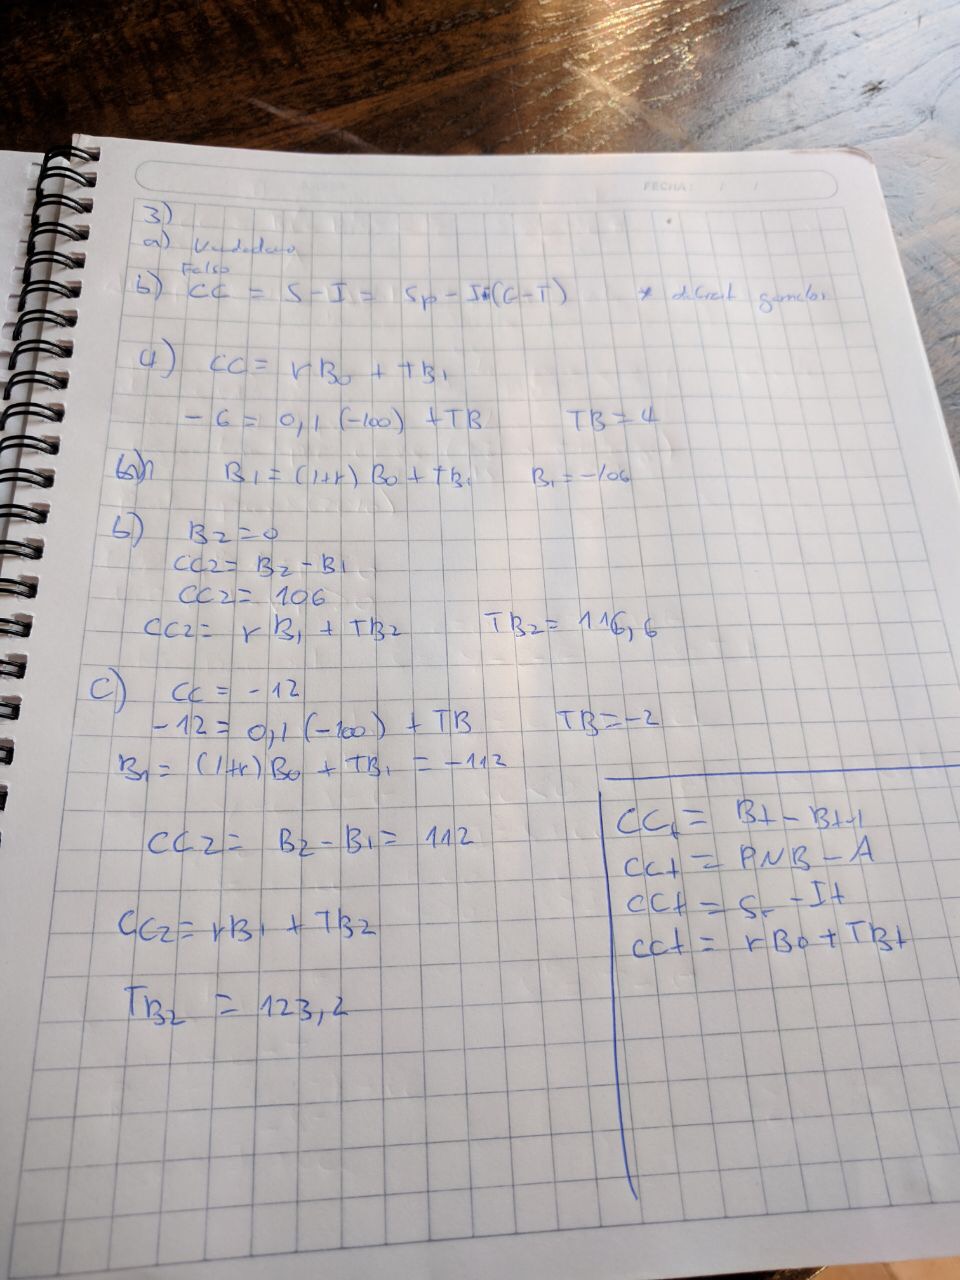 FECHA: / /
3)
a) Verdadero
Falso
b) CC = S - I = Sp - I - (G - T) * deficit gemelos
4) CC = r B0 + TB1
- 6 = 0,1 (-100) + TB TB = 4
B1 = (1+r) B0 + TB1 B1 = -106
b) B2 = 0
CC2 = B2 - B1
CC2 = 106
CC2 = r B1 + TB2 TB2 = 116,6
c) CC = -12
-12 = 0,1 (-100) + TB TB = -2
B1 = (1+r) B0 + TB1 = -112
CC2 = B2 - B1 = 112
CC2 = r B1 + TB2
TB2 = 123,2
CCt = Bt - Bt-1
CCt = PNB - A
CCt = St - It
CCt = r B0 + TBt